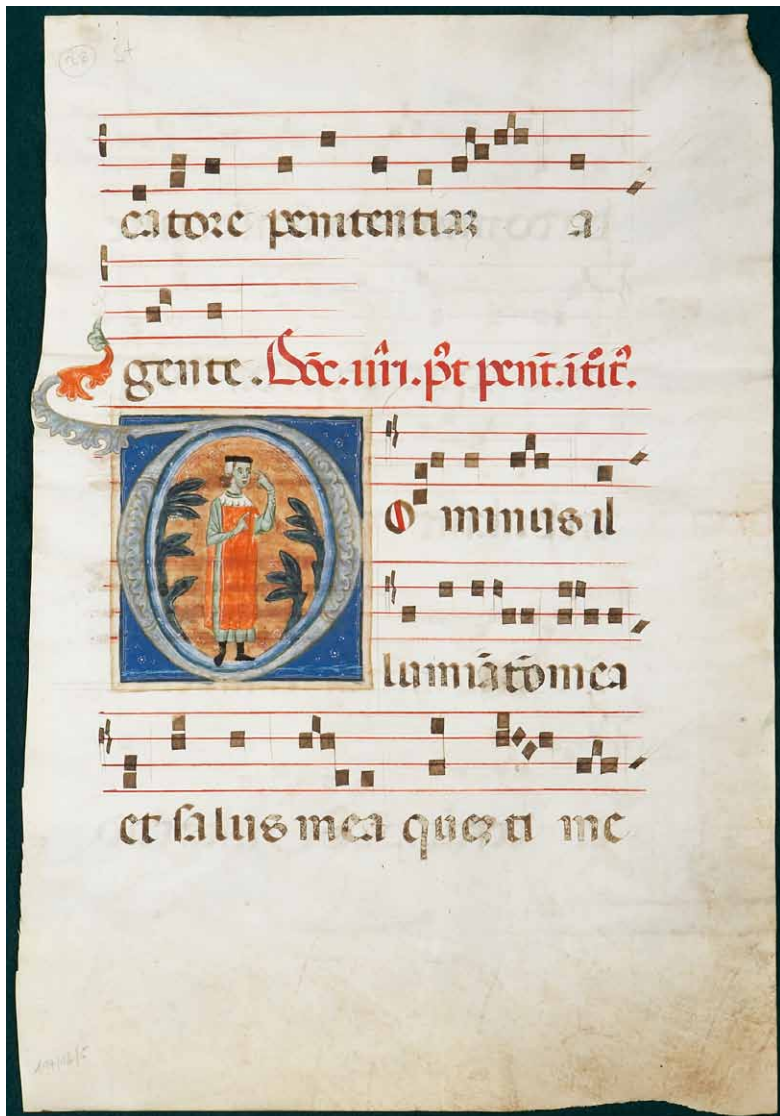 catore penitentiaz a
gente. Dōc. iiii. p̄t pent. ītīt.
O minus il
lumināt̄o mea
et salus mea quez ti me